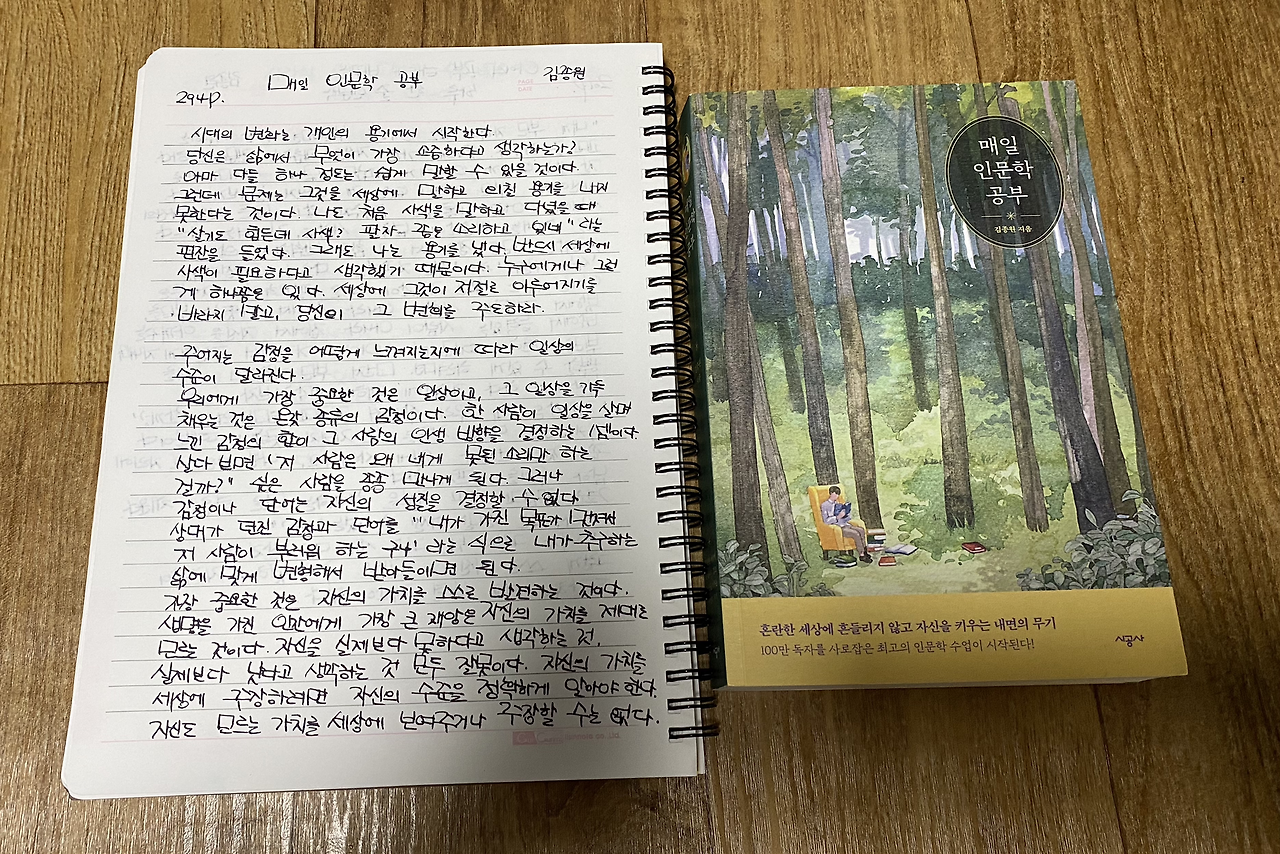 매일 인문학 공부
김종원
PAGE
DATE
294p.
시대의 변화는 개인의 용기에서 시작한다.
당신은 삶에서 무엇이 가장 소중하다고 생각하는가?
아마 다들 하나 정도는 쉽게 말할 수 있을 것이다.
그런데 문제는 그것을 세상에 말하고 외칠 용기를 내지
못한다는 것이다. 나도 처음 사색을 말하고 다녔을 때
"살기도 힘든데 사색? 팔자 좋은 소리하고 있네" 라는
핀잔을 들었다. 그래도 나는 용기를 냈다. 반드시 세상에
사색이 필요하다고 생각했기 때문이다. 누구에게나 그런
게 하나쯤은 있다. 세상에 그것이 저절로 이루어지기를
바라지 말고, 당신이 그 변화를 주도하라.
주어지는 감정을 어떻게 느껴지는지에 따라 일상의
수준이 달라진다.
우리에게 가장 중요한 것은 일상이고, 그 일상을 가득
채우는 것은 온갖 종류의 감정이다. 한 사람이 일상을 살며
느낀 감정의 합이 그 사람의 인생 방향을 결정하는 셈이다.
살다 보면 '저 사람은 왜 내게 못된 소리만 하는
걸까?" 싶은 사람을 종종 만나게 된다. 그러나
감정이나 단어는 자신의 성질을 결정할 수 없다
상대가 던진 감정과 단어를 "내가 가진 목표가
저 사람이 부러워 하는 구나' 라는 식으로 내가 추구하는
삶에 맞게 변형해서 받아들이면 된다.
가장 중요한 것은 자신의 가치를 스스로 발견하는 것이다.
생명을 가진 인간에게 가장 큰 재앙은 자신의 가치를 제대로
모르는 것이다. 자신을 실제보다 못하다고 생각하는 것,
실제보다 낫다고 생각하는 것 모두 잘못이다. 자신의 가치를
세상에 주장하려면 자신의 수준을 정확하게 알아야 한다.
자신도 모르는 가치를 세상에 보여주거나 주장할 수는 없다.
매일
인문학
공부
김종원 지음
혼란한 세상에 흔들리지 않고 자신을 키우는 내면의 무기
100만 독자를 사로잡은 최고의 인문학 수업이 시작된다!
시공사